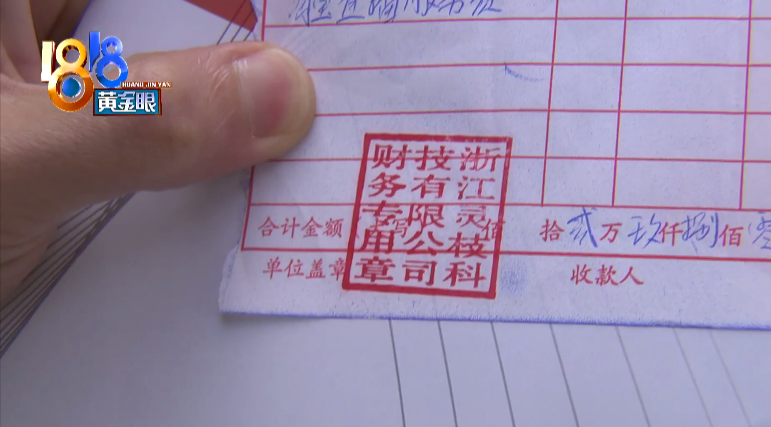 1818
HUANG JIN YAN
黄金眼
浙江灵枝科
技有限公司
财务专用章
合计金额 佰 拾贰万玖仟捌佰零
单位盖章 收款人